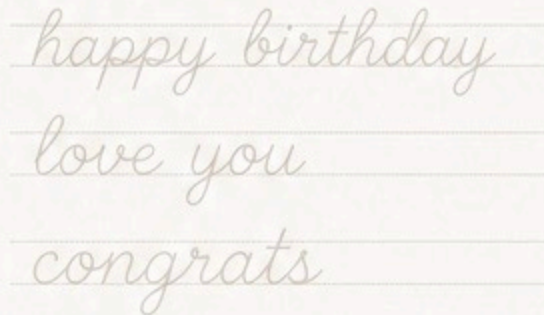 happy birthday
love you
congrats